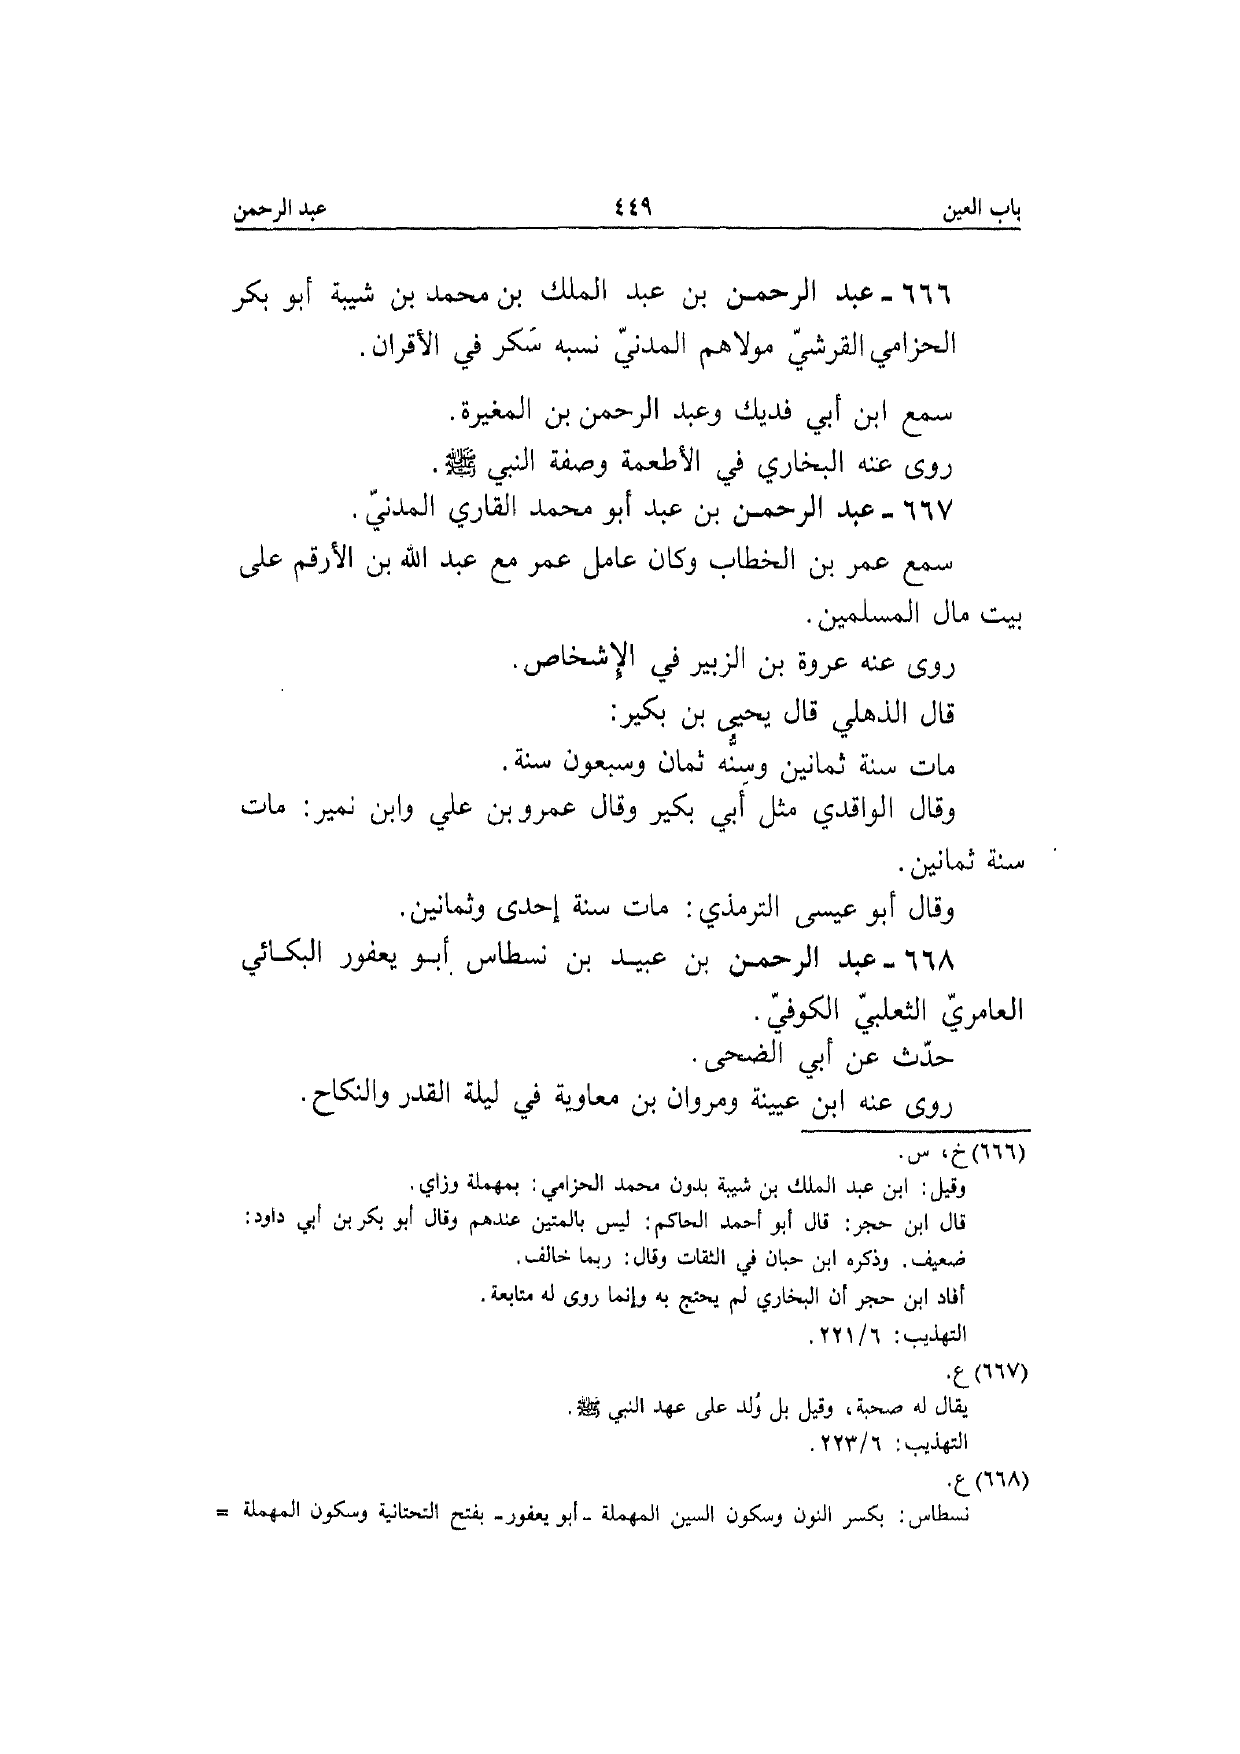 باب العين ٤٤٩ عبد الرحمن
٦٦٦ ـ عبد الرحمـن بن عبد الملك بن محمد بن شيبة أبو بكر
الحزامي القرشيّ مولاهم المدنيّ نسبه سَكر في الأقران.
سمع ابن أبي فديك وعبد الرحمن بن المغيرة.
روى عنه البخاري في الأطعمة وصفة النبي ﷺ.
٦٦٧ ـ عبد الرحمـن بن عبد أبو محمد القاري المدنيّ.
سمع عمر بن الخطاب وكان عامل عمر مع عبد الله بن الأرقم على
بيت مال المسلمين.
روى عنه عروة بن الزبير في الإشخاص.
قال الذهلي قال يحيى بن بكير:
مات سنة ثمانين وسِنُّه ثمان وسبعون سنة.
وقال الواقدي مثل أبي بكير وقال عمرو بن علي وابن نمير: مات
سنة ثمانين.
وقال أبو عيسى الترمذي: مات سنة إحدى وثمانين.
٦٦٨ ـ عبد الرحمـن بن عبيـد بن نسطاس أبـو يعفور البكـائي
العامريّ الثعلبيّ الكوفيّ.
حدّث عن أبي الضحى.
روى عنه ابن عيينة ومروان بن معاوية في ليلة القدر والنكاح.
(٦٦٦) خ، س.
وقيل: ابن عبد الملك بن شيبة بدون محمد الحزامي: بمهملة وزاي.
قال ابن حجر: قال أبو أحمد الحاكم: ليس بالمتين عندهم وقال أبو بكر بن أبي داود:
ضعيف. وذكره ابن حبان في الثقات وقال: ربما خالف.
أفاد ابن حجر أن البخاري لم يحتج به وإنما روى له متابعة.
التهذيب: ٦/٢٢١.
(٦٦٧) ع.
يقال له صحبة، وقيل بل وُلد على عهد النبي ﷺ.
التهذيب: ٦/٢٢٣.
(٦٦٨) ع.
نسطاس: بكسر النون وسكون السين المهملة ـ أبو يعفور ـ بفتح التحتانية وسكون المهملة =